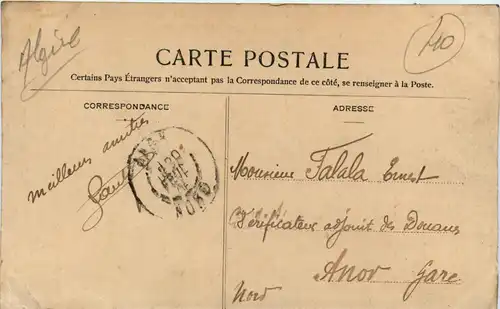 Algérie
40
CARTE POSTALE
Certains Pays Étrangers n'acceptent pas la Correspondance de ce côté, se renseigner à la Poste.
CORRESPONDANCE
ADRESSE
meilleures amitiés
Monsieur Falala Ernest
Vérificateur adjoint des Douanes
Anor Gare
Nord
ANOR
NORD